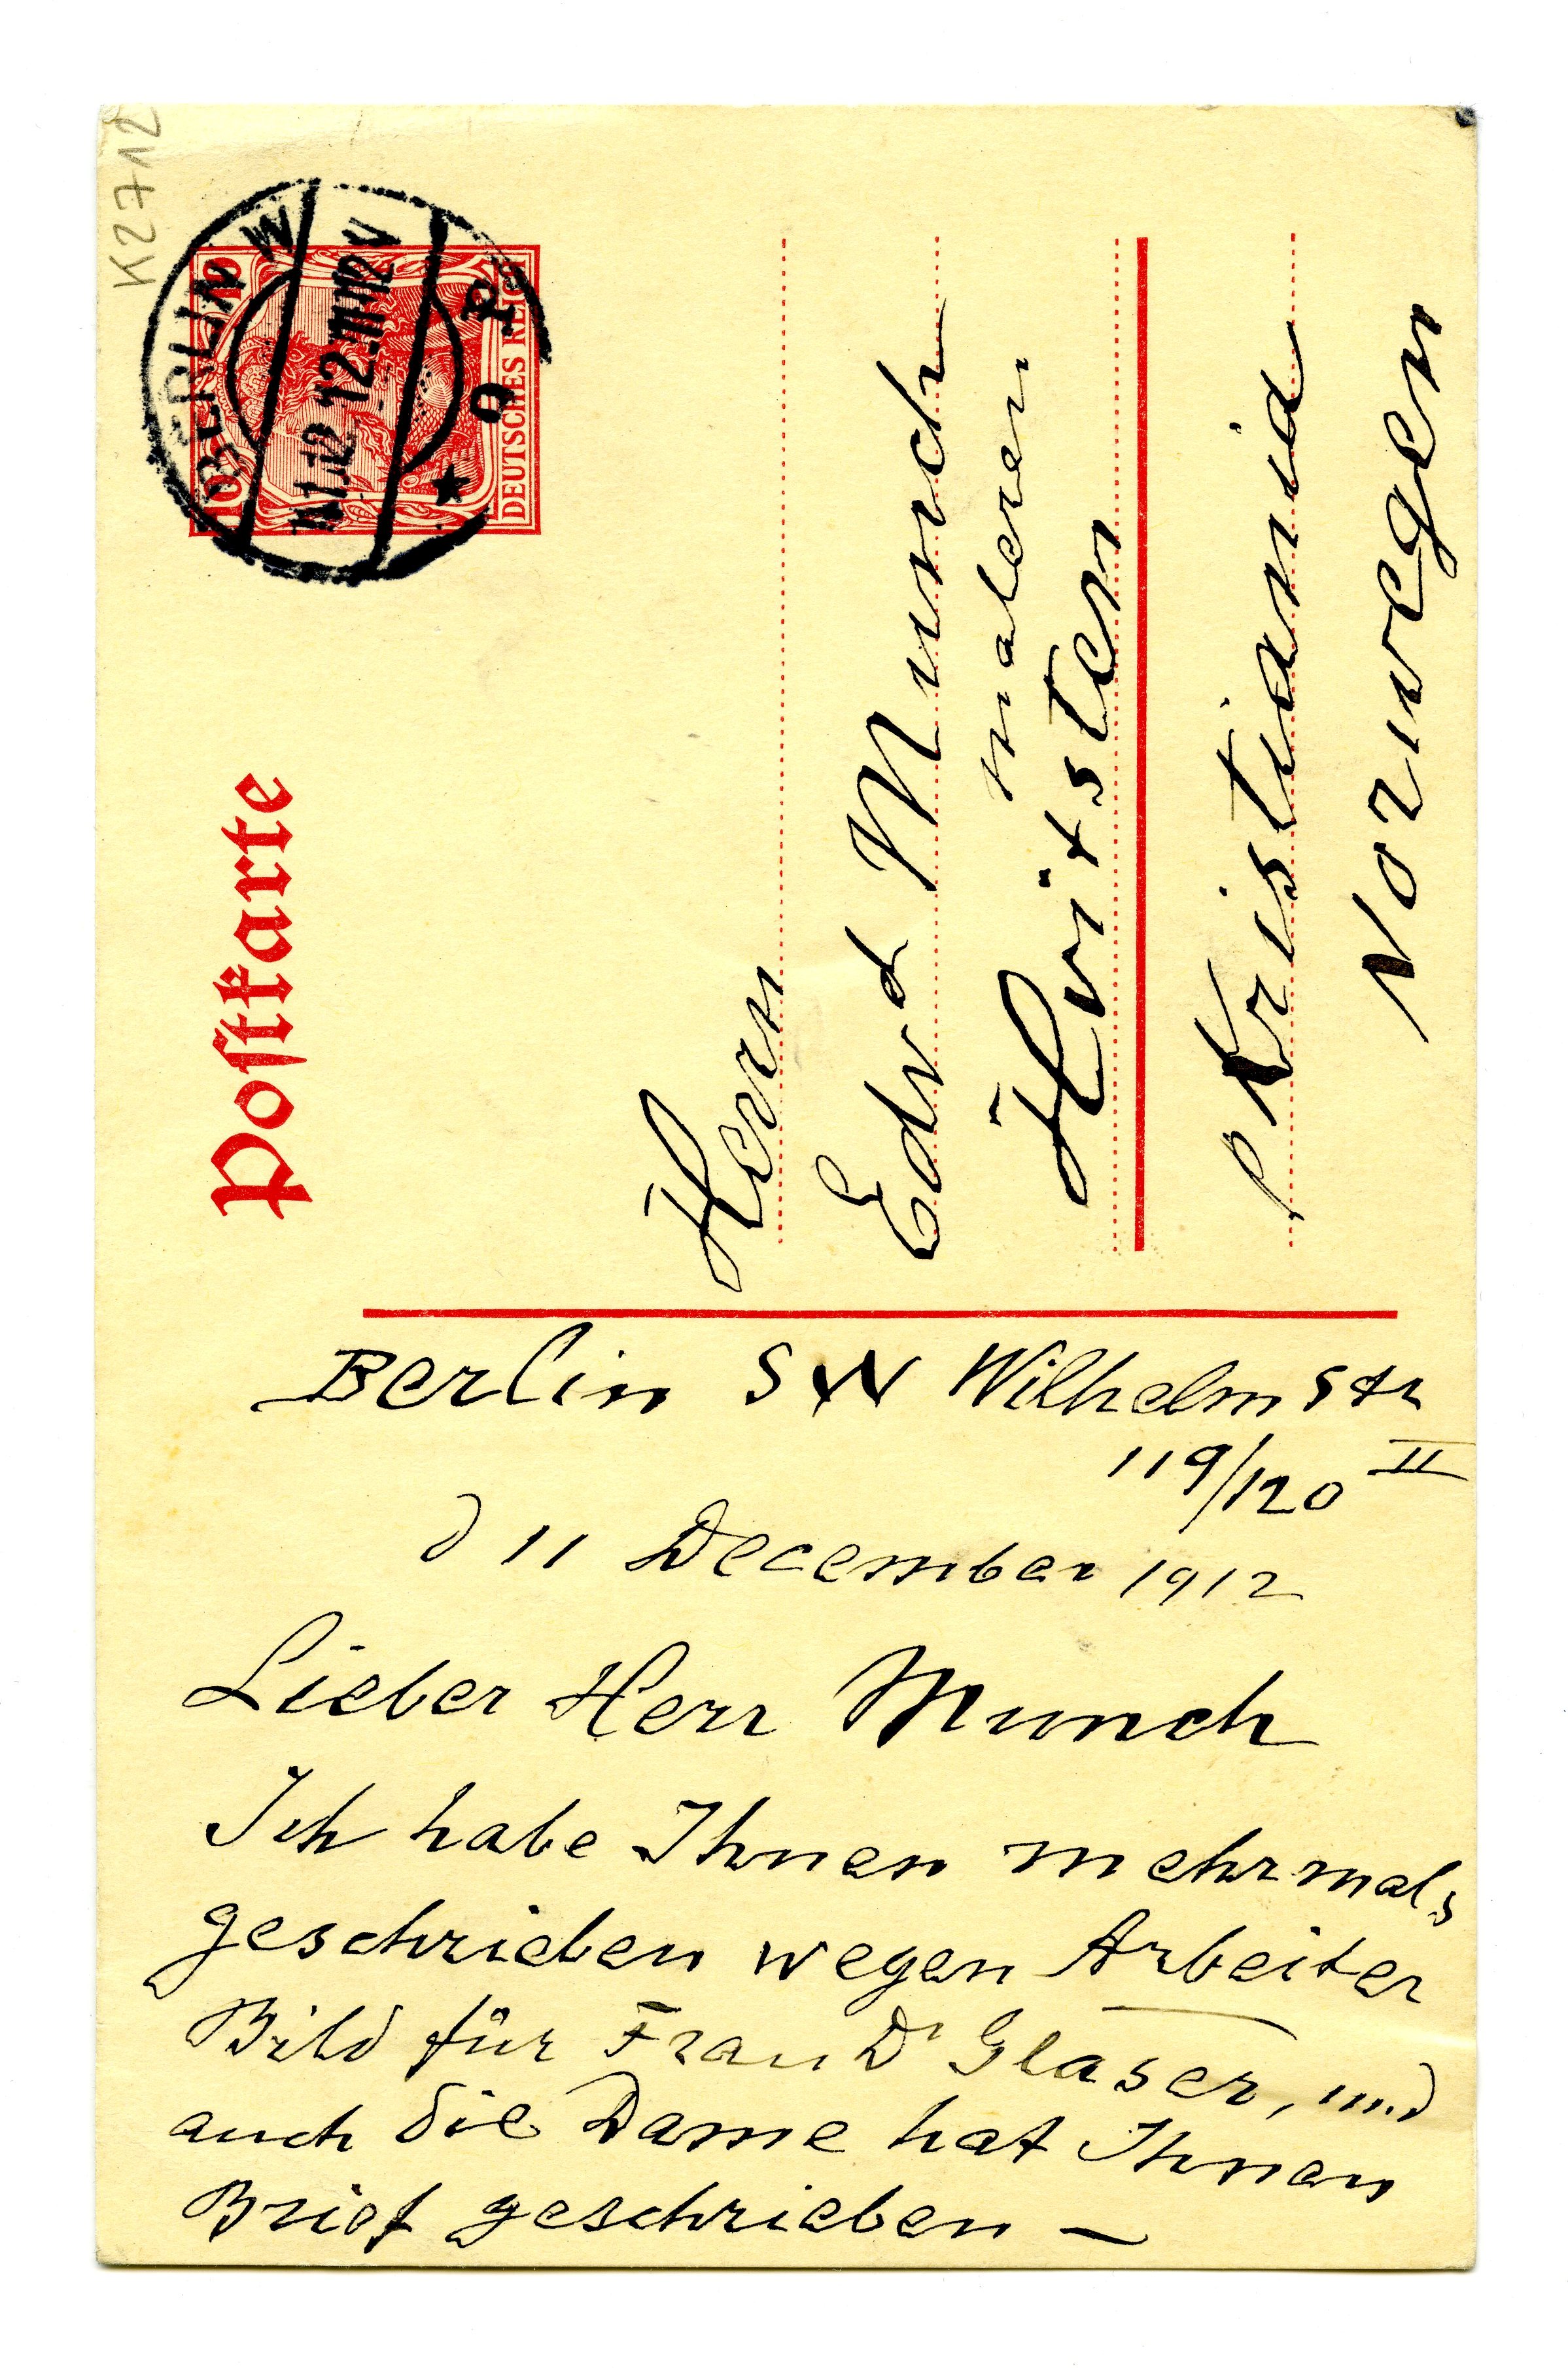 K2712
BERLIN W
11.12.12.11-12V
* 9 R
10 10
DEUTSCHES REICH
Postkarte
Herrn
Edvd Munch
maleren
Hvitsten
p Kristiania
Norwegen
Berlin SW Wilhelmstr
119/120 II
d 11 December 1912
Lieber Herr Munch
Ich habe Ihnen mehrmals
geschrieben wegen Arbeiter
Bild für Frau Dr Glaser, und
auch die Dame hat Ihnen
Brief geschrieben –